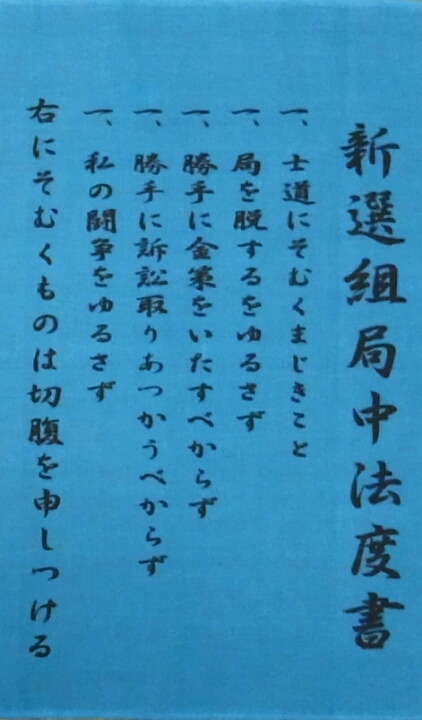 新選組局中法度書
一、士道にそむくまじきこと
一、局を脱するをゆるさず
一、勝手に金策をいたすべからず
一、勝手に訴訟取りあつかうべからず
一、私の闘争をゆるさず
右にそむくものは切腹を申しつける